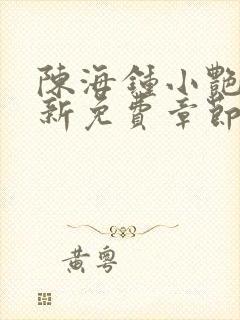 陳海鍾小艷
新免費章節
黃粵